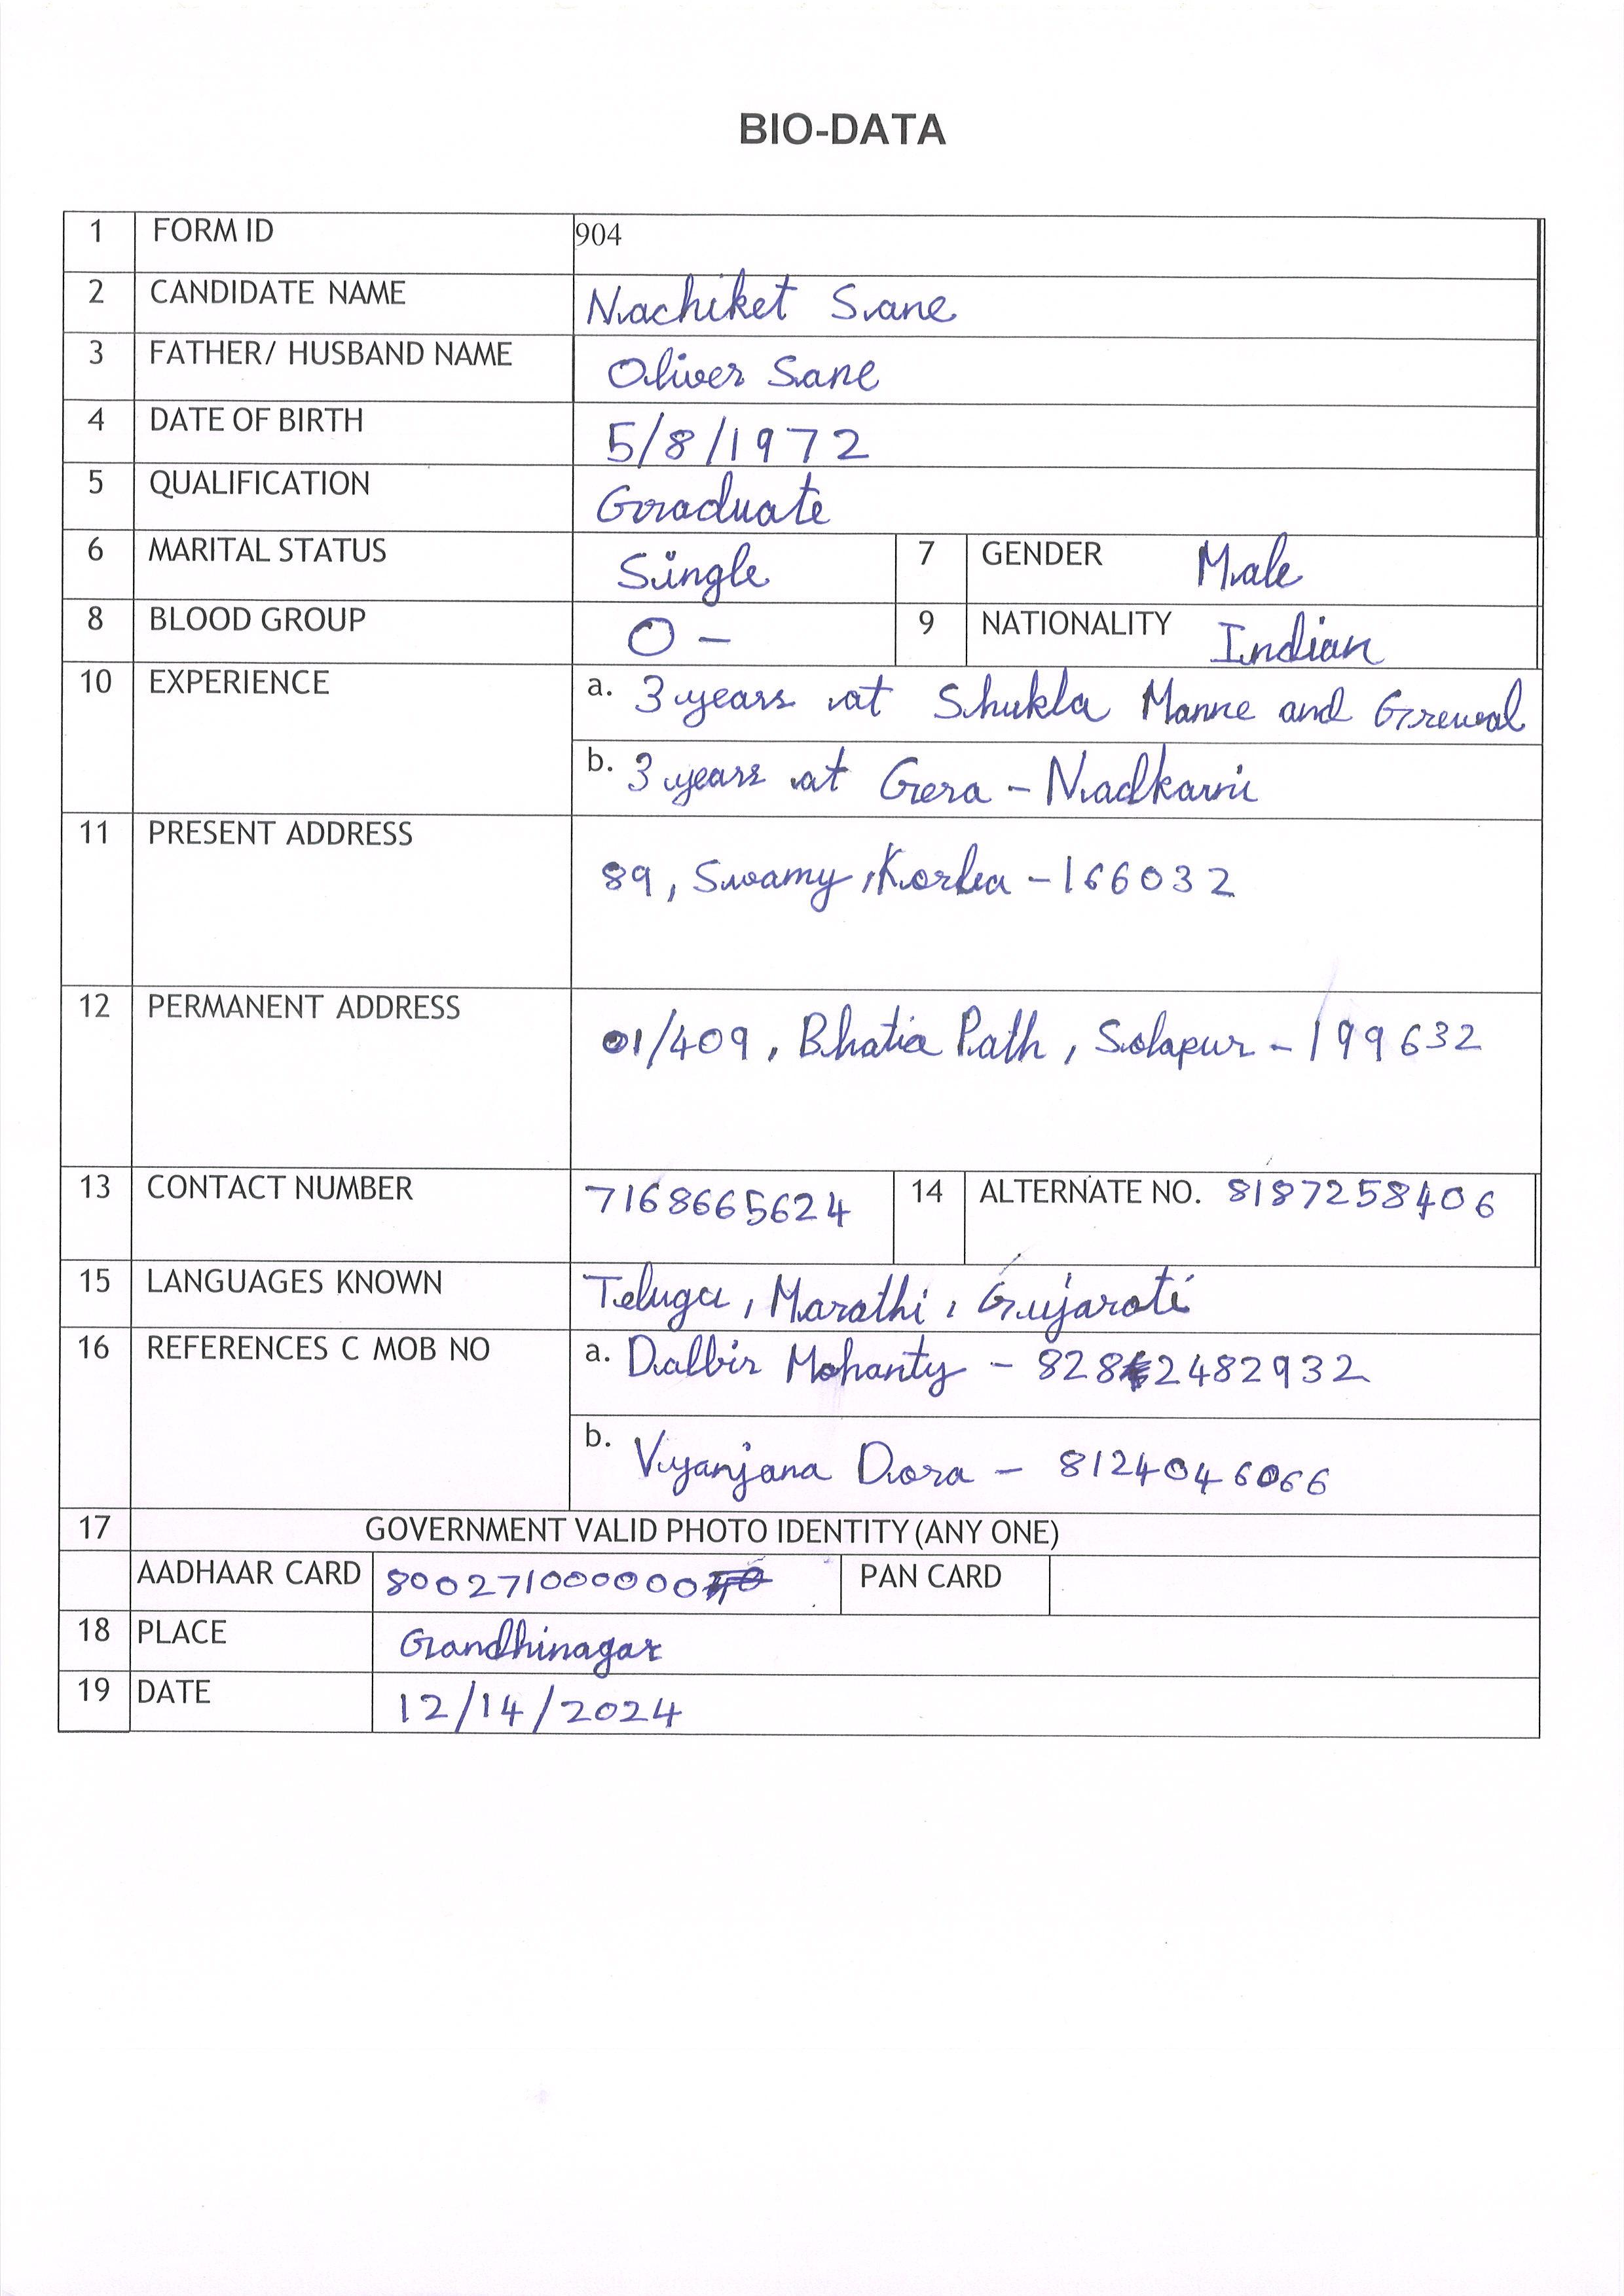 BIO-DATA
1 FORM ID 904
2 CANDIDATE NAME Nachiket Sane
3 FATHER/ HUSBAND NAME Oliver Sane
4 DATE OF BIRTH 5/8/1972
5 QUALIFICATION Graduate
6 MARITAL STATUS Single 7 GENDER Male
8 BLOOD GROUP O - 9 NATIONALITY Indian
10 EXPERIENCE a. 3 years at Shukla Manne and Grewal
b. 3 years at Gera - Nadkarni
11 PRESENT ADDRESS
89, Swamy, Korba - 166032
12 PERMANENT ADDRESS
01/409, Bhatia Path, Solapur - 199632
13 CONTACT NUMBER 7168665624 14 ALTERNATE NO. 8187258406
15 LANGUAGES KNOWN Telugu, Marathi, Gujarati
16 REFERENCES C MOB NO a. Dalbir Mohanty - 8282482932
b. Vyanjana Dora - 8124046066
17 GOVERNMENT VALID PHOTO IDENTITY (ANY ONE)
AADHAAR CARD 800271000000 PAN CARD
18 PLACE Gandhinagar
19 DATE 12/14/2024